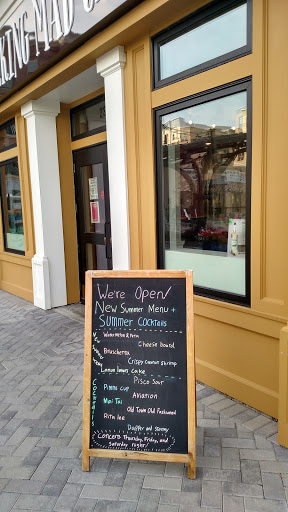 KING MAD
We're Open!
New Summer Menu +
SUMMER COCKTAILS
Watermelon & Feta
Cheese board
Bruschetta
Crispy coconut shrimp
Lemon lawn cake
Cocktails
Pisco Sour
Pimms cup
Aviation
Mai Tai
Old Town Old Fashioned
Rita lee
Dapper and stormy
Concerts Thursday, Friday, and
Saturday nights!